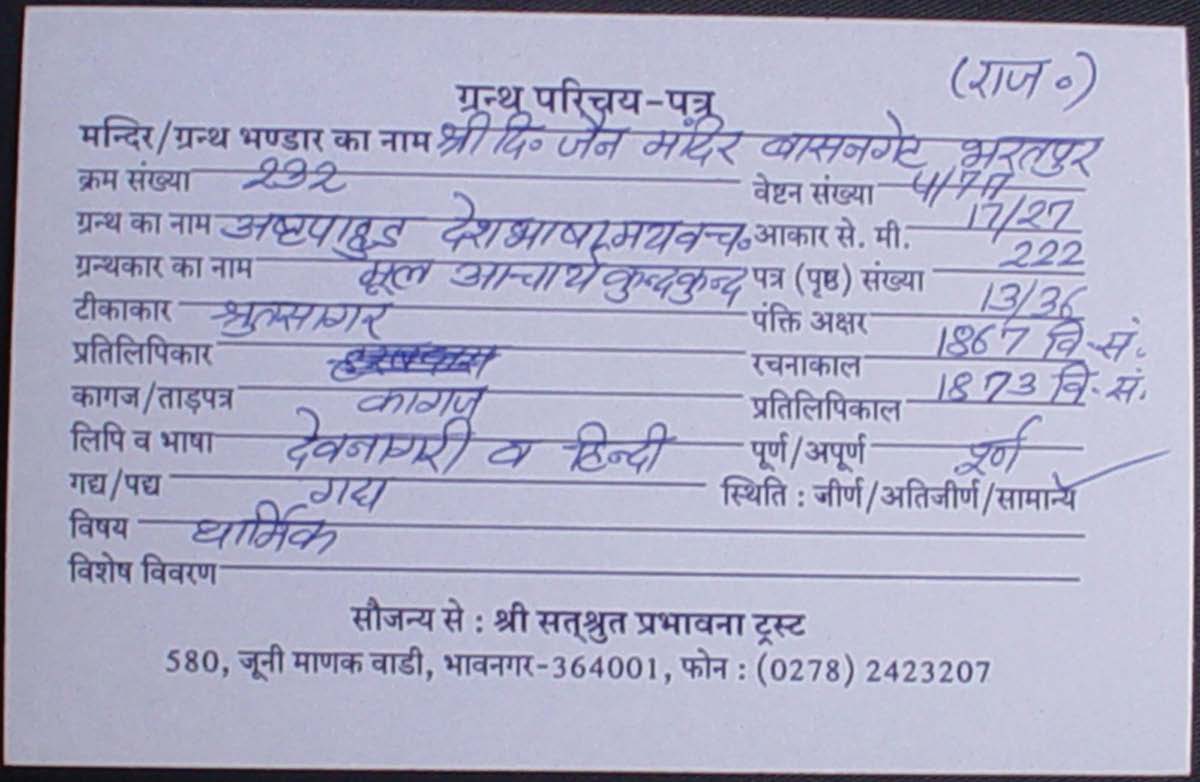 (राज०)
ग्रन्थ परिचय-पत्र
मन्दिर/ग्रन्थ भण्डार का नाम श्री दि० जैन मंदिर बासनगेट भरतपुर
क्रम संख्या 232 वेष्टन संख्या 4/77
ग्रन्थ का नाम अष्टपाहुड देशभाषामयवच० आकार से. मी. 17/27
ग्रन्थकार का नाम मूल आचार्य कुन्दकुन्द पत्र (पृष्ठ) संख्या 222
टीकाकार श्रुतसागर पंक्ति अक्षर 13/36
प्रतिलिपिकार रचनाकाल 1867 वि.सं.
कागज/ताड़पत्र कागज प्रतिलिपिकाल 1873 वि.सं.
लिपि व भाषा देवनागरी व हिन्दी पूर्ण/अपूर्ण पूर्ण
गद्य/पद्य गद्य स्थिति : जीर्ण/अतिजीर्ण/सामान्य
विषय धार्मिक
विशेष विवरण
सौजन्य से : श्री सत्श्रुत प्रभावना ट्रस्ट
580, जूनी माणक वाडी, भावनगर-364001, फोन : (0278) 2423207